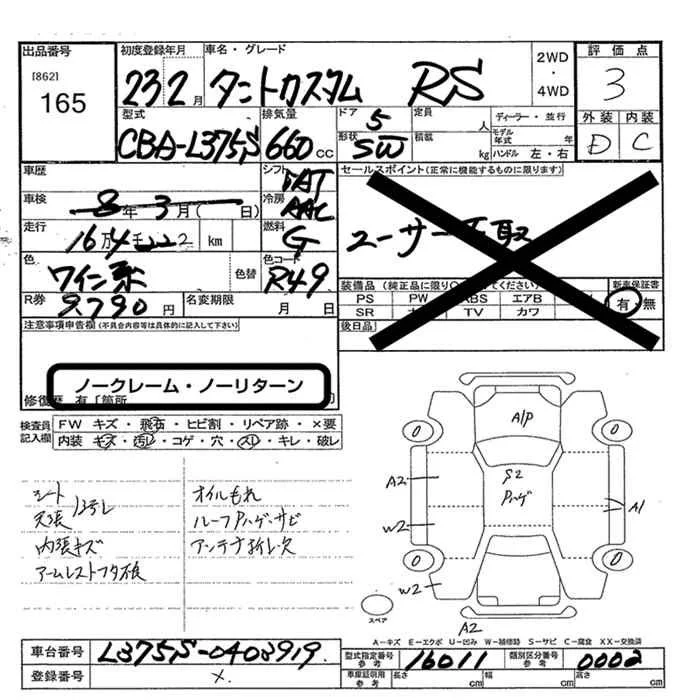 出品番号 初度登録年月 車名・グレード 2WD・4WD 評価点
[862]
165 23 2月 タントカスタム RS 3
型式 排気量 ドア 5 定員 人 ディーラー・並行 外装 内装
CBA-L375S 660 cc 形状 SW 積載 kg モデル年式 年 ハンドル 左・右 D C
車歴 シフト セールスポイント(正常に機能するものに限ります)
車検 8年 3月( 日) 冷房 AAC
走行 16万4千 km 燃料 G ユーザー買取
色 ワイン系 色替 色コード R49
R券 9790円 名変期限 月 日
装備品 新車保証書
PS PW ABS エアB 有・無
SR TV カワ
注意事項申告欄(不具合内容等は具体的に記入して下さい) 後日品
ノークレーム・ノーリターン
修復歴 有 [箇所
検査員記入欄 FW キズ・飛石・ヒビ割・リペア跡・×要
内装 キズ・汚レ・コゲ・穴・スレ・キレ・破レ
シート オイルもれ
天張 ヨゴレ ルーフPハゲ・サビ
内張キズ アンテナ折レ欠
アームレストフタ破
A/P
0 0
S2
Pハゲ
A2 A1
W2
0 0
W2
スペア
A2
A-キズ E-エクボ U-凹み W-補修跡 S-サビ C-腐食 XX-交換済
車台番号 L375S-0403919 型式指定番号 参考 16011 類別区分番号 参考 0002
登録番号 × 車庫証明用 参考 長さ cm 幅 cm 高さ cm